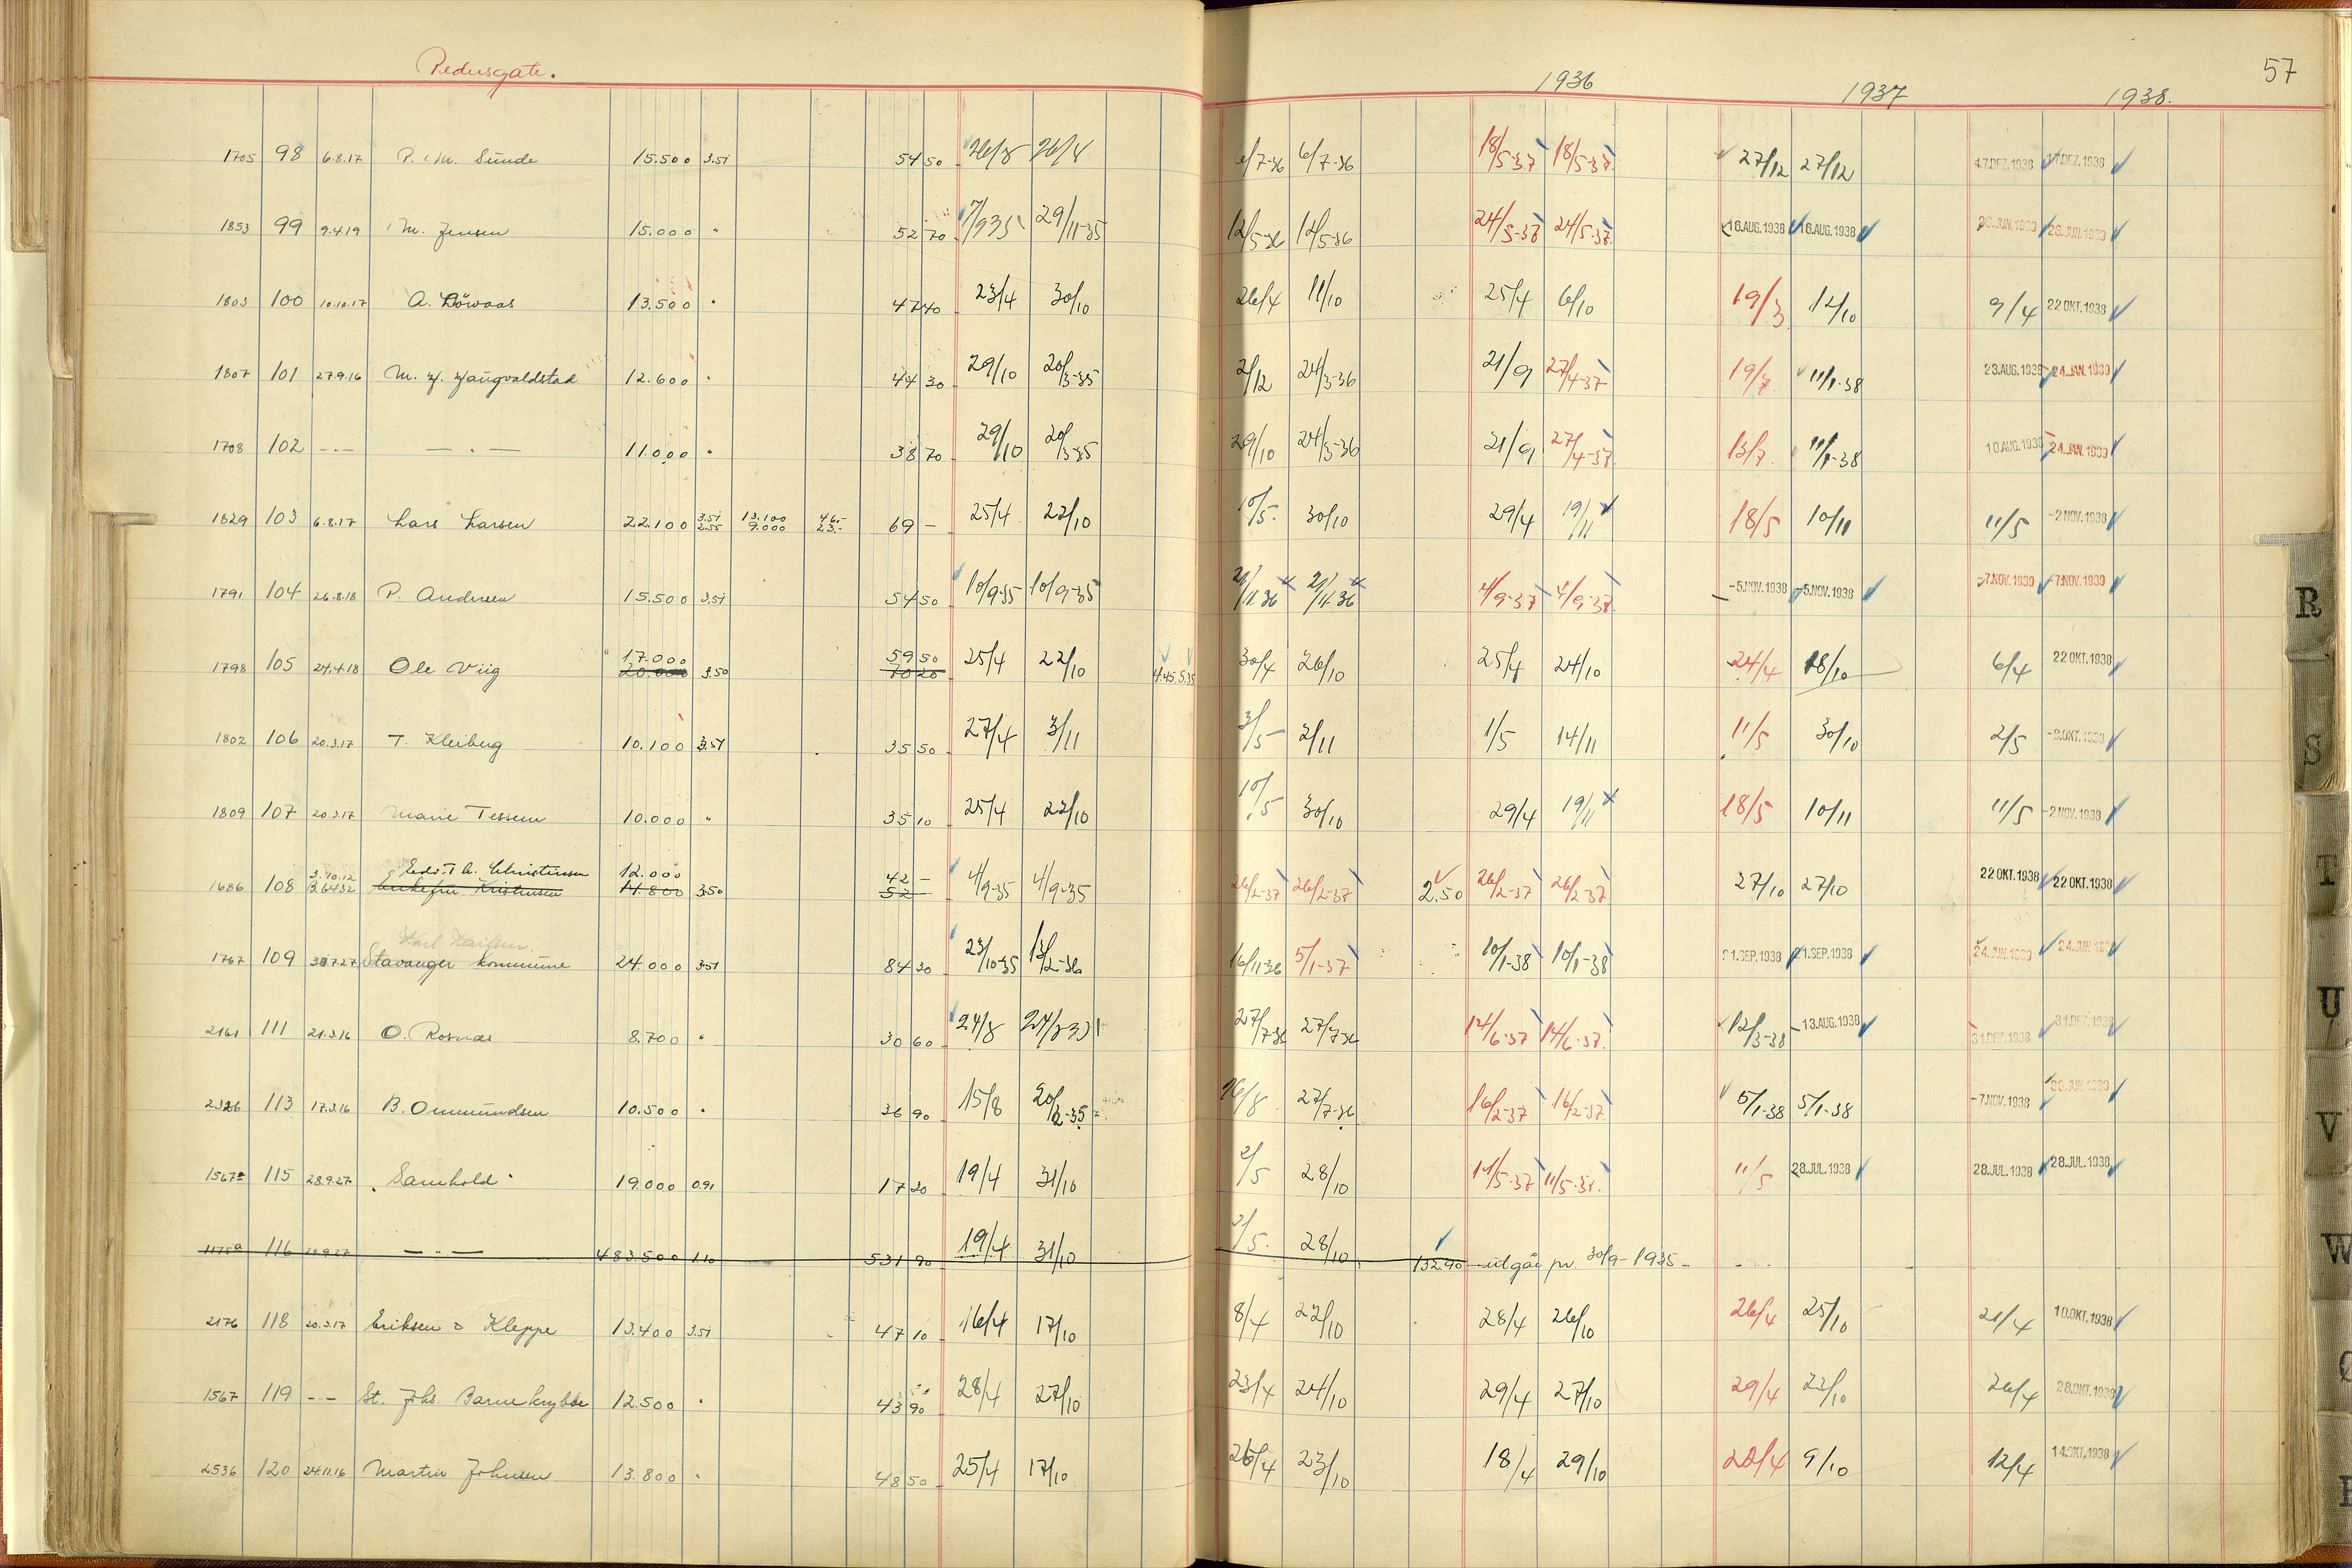 Pedersgate.
1936 1937 1938. 57
1705 98 6.8.17 P. M. Sunde 15.500 3.51 54 50 26/8 26/8 6/7-36 6/7-36 18/5-37 18/5-37. 27/12 27/12 17.DEZ.1938 17.DEZ.1938
1853 99 9.4.19 M. Jensen 15.000 " 52 70 7/9 35 29/11-35 12/5-36 12/5-36 24/5-37 24/5-37. 16.AUG.1938 16.AUG.1938 26.JUN.1939 26.JUN.1939
1803 100 10.10.17 A. Löwaas 13.500 " 47 40 23/4 30/10 26/4 11/10 25/4 6/10 19/3 12/10 9/4 22 OKT.1938
1807 101 27.9.16 M. H. Haugvaldstad 12.600 " 44 30 29/10 20/3-35 2/12 24/3-36 21/9 27/4-37 19/7. 11/1-38 23.AUG.1938 24.JAN.1939
1708 102 -.- — . — 11.000 " 38 70 29/10 20/3-35 29/10 24/3-36 21/9 27/4-37. 13/7. 11/1-38 10.AUG.1938 24.JAN.1939
1829 103 6.8.17 Lars Larsen 22.100 3.51 2.55 13.100 9.000 46.- 23.- 69 – 25/4 22/10 10/5. 30/10 29/4 19/11 18/5 10/11 11/5 -2 NOV.1938
1791 104 26.8.18 P. Andersen 15.500 3.51 54 50 10/9-35 10/9-35 21/11-36 21/11-36 4/9-37 4/9-37. -5.NOV.1938 -5.NOV.1938 -7.NOV.1939 -7.NOV.1939
1798 105 24.4.18 Ole Viig 17.000 20.000 3.50 59 50 70 20 25/4 22/10 4.45 5.35 30/4 26/10 25/4 24/10 24/4 18/10 6/4 22 OKT.1938
1802 106 20.3.17 T. Kleiberg 10.100 3.51 35 50 27/4 3/11 3/5 2/11 1/5 14/11 11/5 30/10 2/5 OKT.1938
1809 107 20.3.17 Marie Tessem 10.000 " 35 10 25/4 22/10 10/5 30/10 29/4 19/11 18/5 10/11 11/5 -2 NOV.1938
1686 108 3.10.12 B.6432 Edv. Th. Christensen Enkefru Kristensen 12.000 14.800 3.50 42 – 52 – 4/9-35 4/9-35 26/2-37 26/2-37 2.50 26/2-37 26/2-37 27/10 27/10 22 OKT.1938 22 OKT.1938
1767 109 30.7.27 Stavanger kommune 24.000 3.51 84 30 23/10-35 13/2-36 16/11-36 5/1-37 10/1-38 10/1-38 21.SEP.1938 21.SEP.1938 24.JUN.1939 24.JUN.1939
2161 111 21.3.16 O. Rosnæs 8.700 " 30 60 24/8 24/8 35 27/7-36 27/7-36 14/6-37 14/6-37. 12/3-38 -13.AUG.1938 31.DEZ.1938 31.DEZ.1938
2326 113 17.3.16 B. Ommundsen 10.500 " 36 90 15/8 20/2-35 26/8 27/7-36 16/2-37 16/2-37 5/1-38 5/1-38 -7.NOV.1938 30.JUN.1939
1567a 115 28.9.27 "Samhold" 19.000 0.91 17 30 19/4 31/10 2/5 28/10 11/5-37 11/5-37. 11/5 28.JUL.1938 28.JUL.1938 28.JUL.1938
1175a 116 28.9.27 — . — 483.500 1.10 531 90 19/4 31/10 2/5. 28/10 132.90 utgår pr. 30/9-1935
2176 118 20.3.17 Eriksen & Kleppe 13.400 3.51 47 10 16/4 17/10 8/4 22/10 28/4 26/10 26/4 25/10 21/4 10.OKT.1938
1567 119 -.- St. Johs. Barnekrybbe 12.500 " 43 90 28/4 27/10 23/4 24/10 29/4 27/10 29/4 23/10 26/4 28.OKT.1938
2536 120 24.11.16 Martin Johnsen 13.800 " 48 50 25/4 17/10 26/4 23/10 18/4 29/10 20/4 9/10 12/4 14.OKT.1938
R
S
T
U
V
W